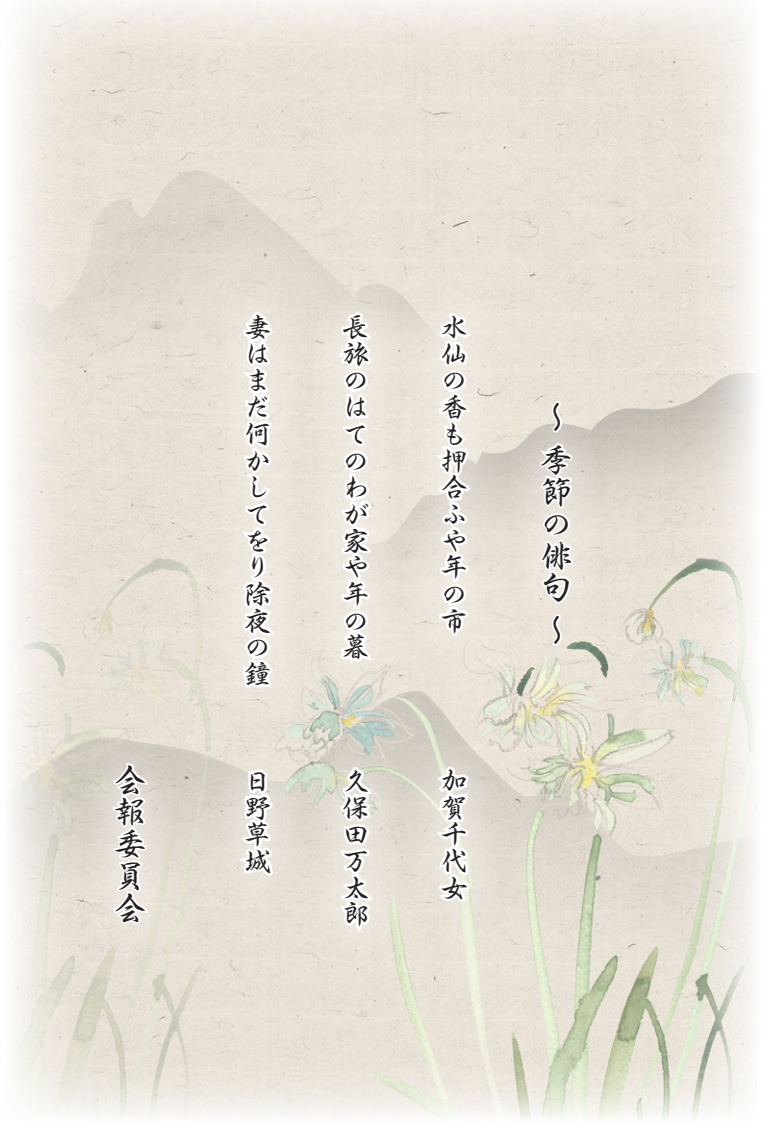 ～ 季節の俳句 ～
水仙の香も押合ふや年の市
加賀千代女
長旅のはてのわが家や年の暮
久保田万太郎
妻はまだ何かしてをり除夜の鐘
日野草城
会報委員会